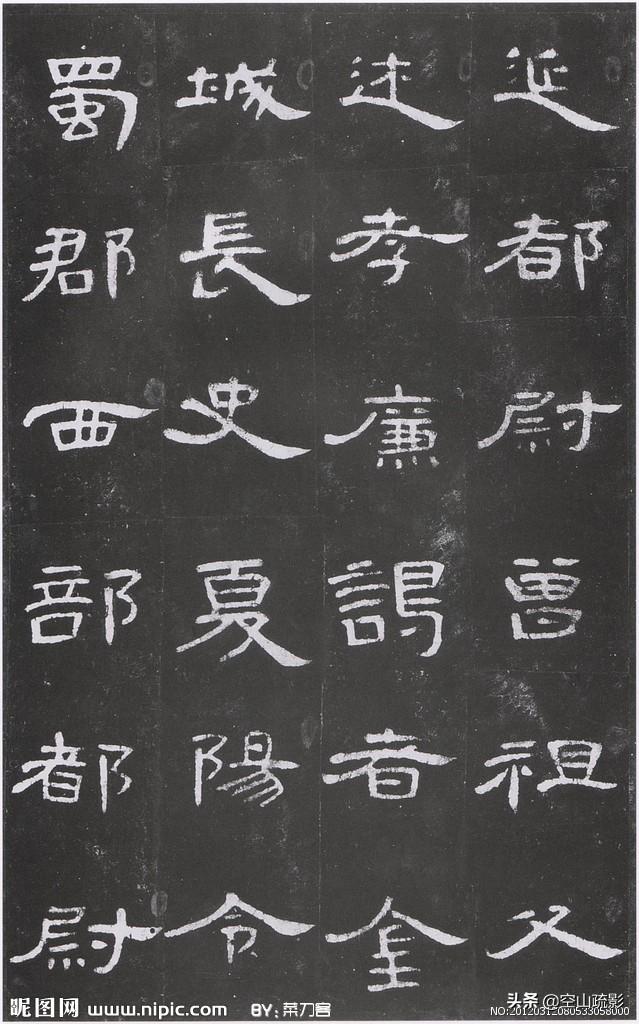 延都尉曾祖父
述孝廉謁者金
城長史夏陽令
蜀郡西部都尉
头条 @空山疏影
昵图网 www.nipic.com BY:菜刀客 NO:20120312080533058000